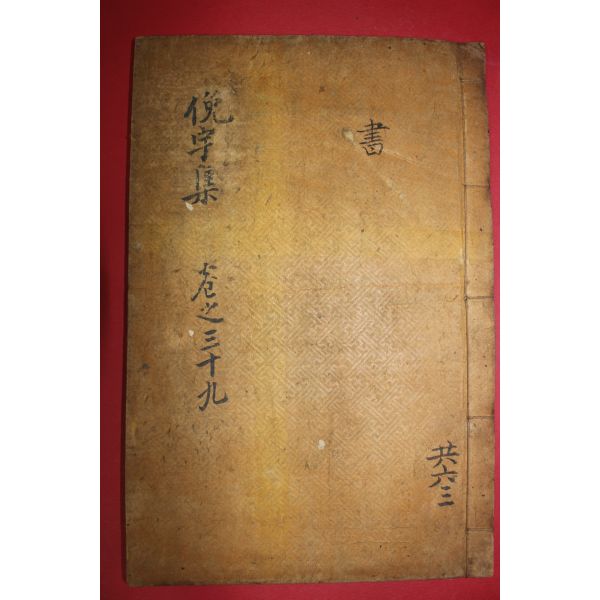 書
共六三
俛宇集 卷之三十九